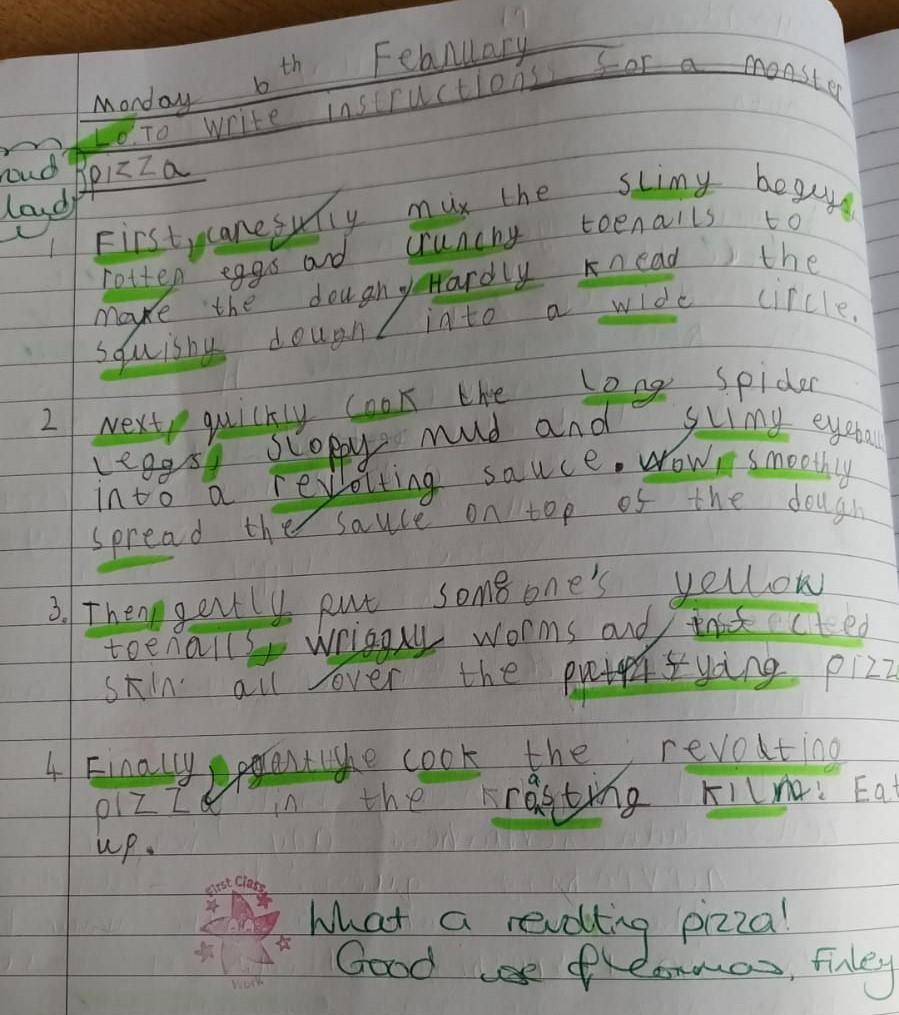 Monday 6th Febnuary
L.O. TO write instructions for a monster
pizza
1 First, carefully mix the slimy bogeys,
rotten eggs and crunchy toenails to
make the dough, Hardly knead, the
squishy dough into a wide circle.
2 Next, quickly cook the long spider
leggs, sloppy mud and slimy
into a revolting sauce. wow, smoothly
spread the sauce on top of the dough
3. Then, gently put someone's yellow
toenails, wriggly worms and
skin. all over the
4 Finally, cook the revolting
pizza in the kiln. Eat
up.
First Class
Work
What a revolting pizza!
Good use of commas, Finley